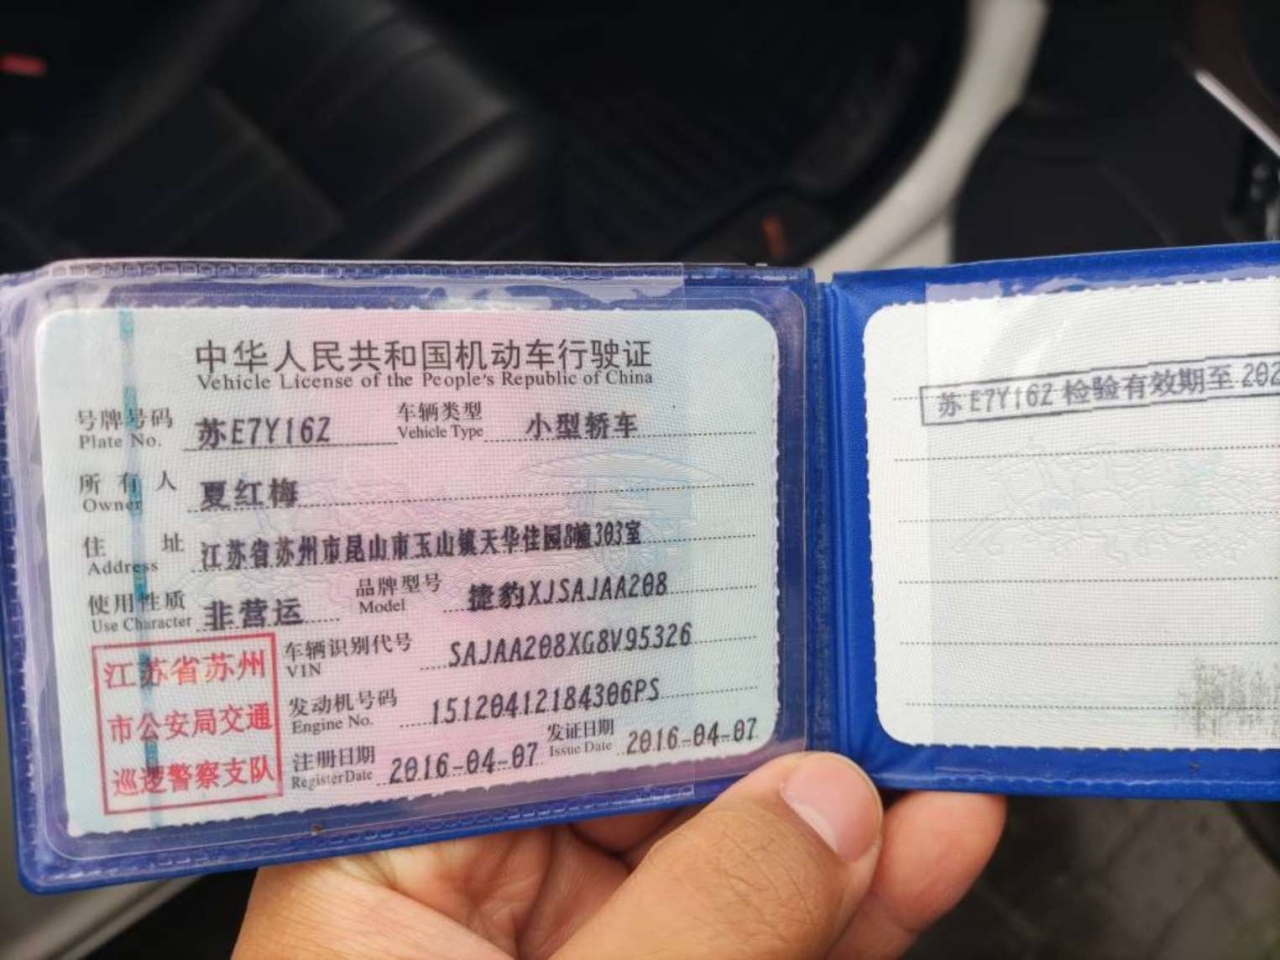 中华人民共和国机动车行驶证
Vehicle License of the People's Republic of China
号牌号码 苏E7Y16Z 车辆类型 小型轿车
Plate No. Vehicle Type
所有人 夏红梅
Owner
住址 江苏省苏州市昆山市玉山镇天华佳园8幢303室
Address
使用性质 非营运 品牌型号 捷豹XJSAJAA208
Use Character Model
车辆识别代号 SAJAA208XG8V95326
VIN
发动机号码 15120412184306PS
Engine No.
注册日期 2016-04-07 发证日期 2016-04-07
Register Date Issue Date
江苏省苏州
市公安局交通
巡逻警察支队
苏E7Y16Z 检验有效期至 202